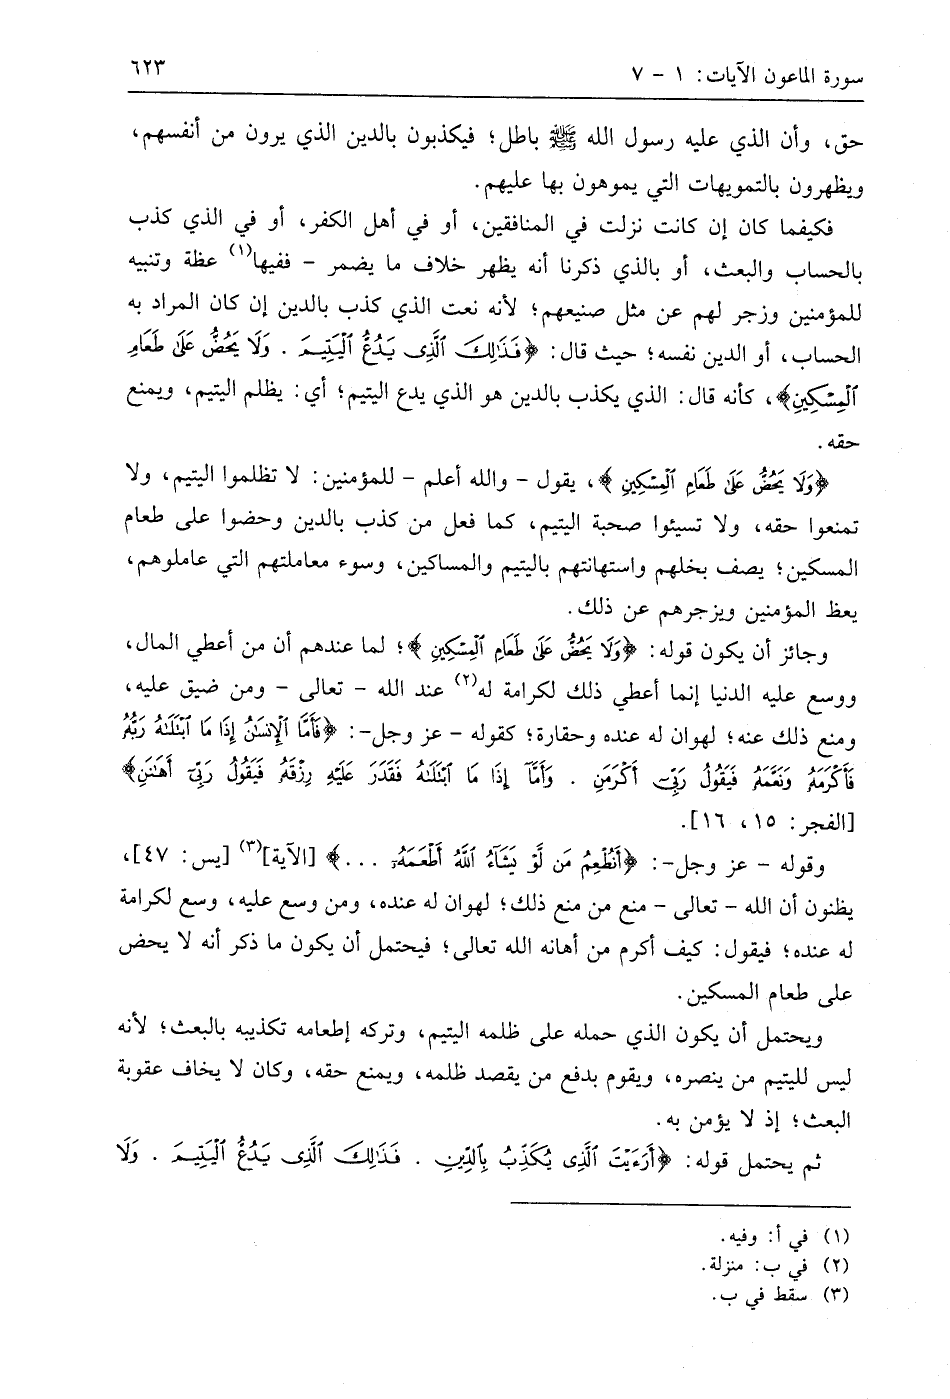 سورة الماعون الآيات: ١ - ٧
٦٢٣
حق، وأن الذي عليه رسول الله ﷺ باطل؛ فيكذبون بالدين الذي يرون من أنفسهم،
ويظهرون بالتمويهات التي يموهون بها عليهم.
فكيفما كان إن كانت نزلت في المنافقين، أو في أهل الكفر، أو في الذي كذب
بالحساب والبعث، أو بالذي ذكرنا أنه يظهر خلاف ما يضمر - ففيها(١) عظة وتنبيه
للمؤمنين وزجر لهم عن مثل صنيعهم؛ لأنه نعت الذي كذب بالدين إن كان المراد به
الحساب، أو الدين نفسه؛ حيث قال: ﴿فَذَٰلِكَ ٱلَّذِى يَدُعُّ ٱلْيَتِيمَ . وَلَا يَحُضُّ عَلَىٰ طَعَامِ
ٱلْمِسْكِينِ﴾، كأنه قال: الذي يكذب بالدين هو الذي يدع اليتيم؛ أي: يظلم اليتيم، ويمنع
حقه.
﴿وَلَا يَحُضُّ عَلَىٰ طَعَامِ ٱلْمِسْكِينِ﴾، يقول - والله أعلم - للمؤمنين: لا تظلموا اليتيم، ولا
تمنعوا حقه، ولا تسيئوا صحبة اليتيم، كما فعل من كذب بالدين وحضوا على طعام
المسكين؛ يصف بخلهم واستهانتهم باليتيم والمساكين، وسوء معاملتهم التي عاملوهم،
يعظ المؤمنين ويزجرهم عن ذلك.
وجائز أن يكون قوله: ﴿وَلَا يَحُضُّ عَلَىٰ طَعَامِ ٱلْمِسْكِينِ﴾؛ لما عندهم أن من أعطي المال،
ووسع عليه الدنيا إنما أعطي ذلك لكرامة له(٢) عند الله - تعالى - ومن ضيق عليه،
ومنع ذلك عنه؛ لهوان له عنده وحقارة؛ كقوله - عز وجل-: ﴿فَأَمَّا ٱلْإِنسَٰنُ إِذَا مَا ٱبْتَلَىٰهُ رَبُّهُۥ
فَأَكْرَمَهُۥ وَنَعَّمَهُۥ فَيَقُولُ رَبِّىٓ أَكْرَمَنِ . وَأَمَّآ إِذَا مَا ٱبْتَلَىٰهُ فَقَدَرَ عَلَيْهِ رِزْقَهُۥ فَيَقُولُ رَبِّىٓ أَهَٰنَنِ﴾
[الفجر: ١٥، ١٦].
وقوله - عز وجل-: ﴿أَنُطْعِمُ مَن لَّوْ يَشَآءُ ٱللَّهُ أَطْعَمَهُۥٓ ...﴾ [الآية](٣) [يس: ٤٧]،
يظنون أن الله - تعالى - منع من منع ذلك؛ لهوان له عنده، ومن وسع عليه، وسع لكرامة
له عنده؛ فيقول: كيف أكرم من أهانه الله تعالى؛ فيحتمل أن يكون ما ذكر أنه لا يحض
على طعام المسكين.
ويحتمل أن يكون الذي حمله على ظلمه اليتيم، وتركه إطعامه تكذيبه بالبعث؛ لأنه
ليس لليتيم من ينصره، ويقوم بدفع من يقصد ظلمه، ويمنع حقه، وكان لا يخاف عقوبة
البعث؛ إذ لا يؤمن به.
ثم يحتمل قوله: ﴿أَرَءَيْتَ ٱلَّذِى يُكَذِّبُ بِٱلدِّينِ . فَذَٰلِكَ ٱلَّذِى يَدُعُّ ٱلْيَتِيمَ . وَلَا
(١) في أ: وفيه.
(٢) في ب: منزلة.
(٣) سقط في ب.